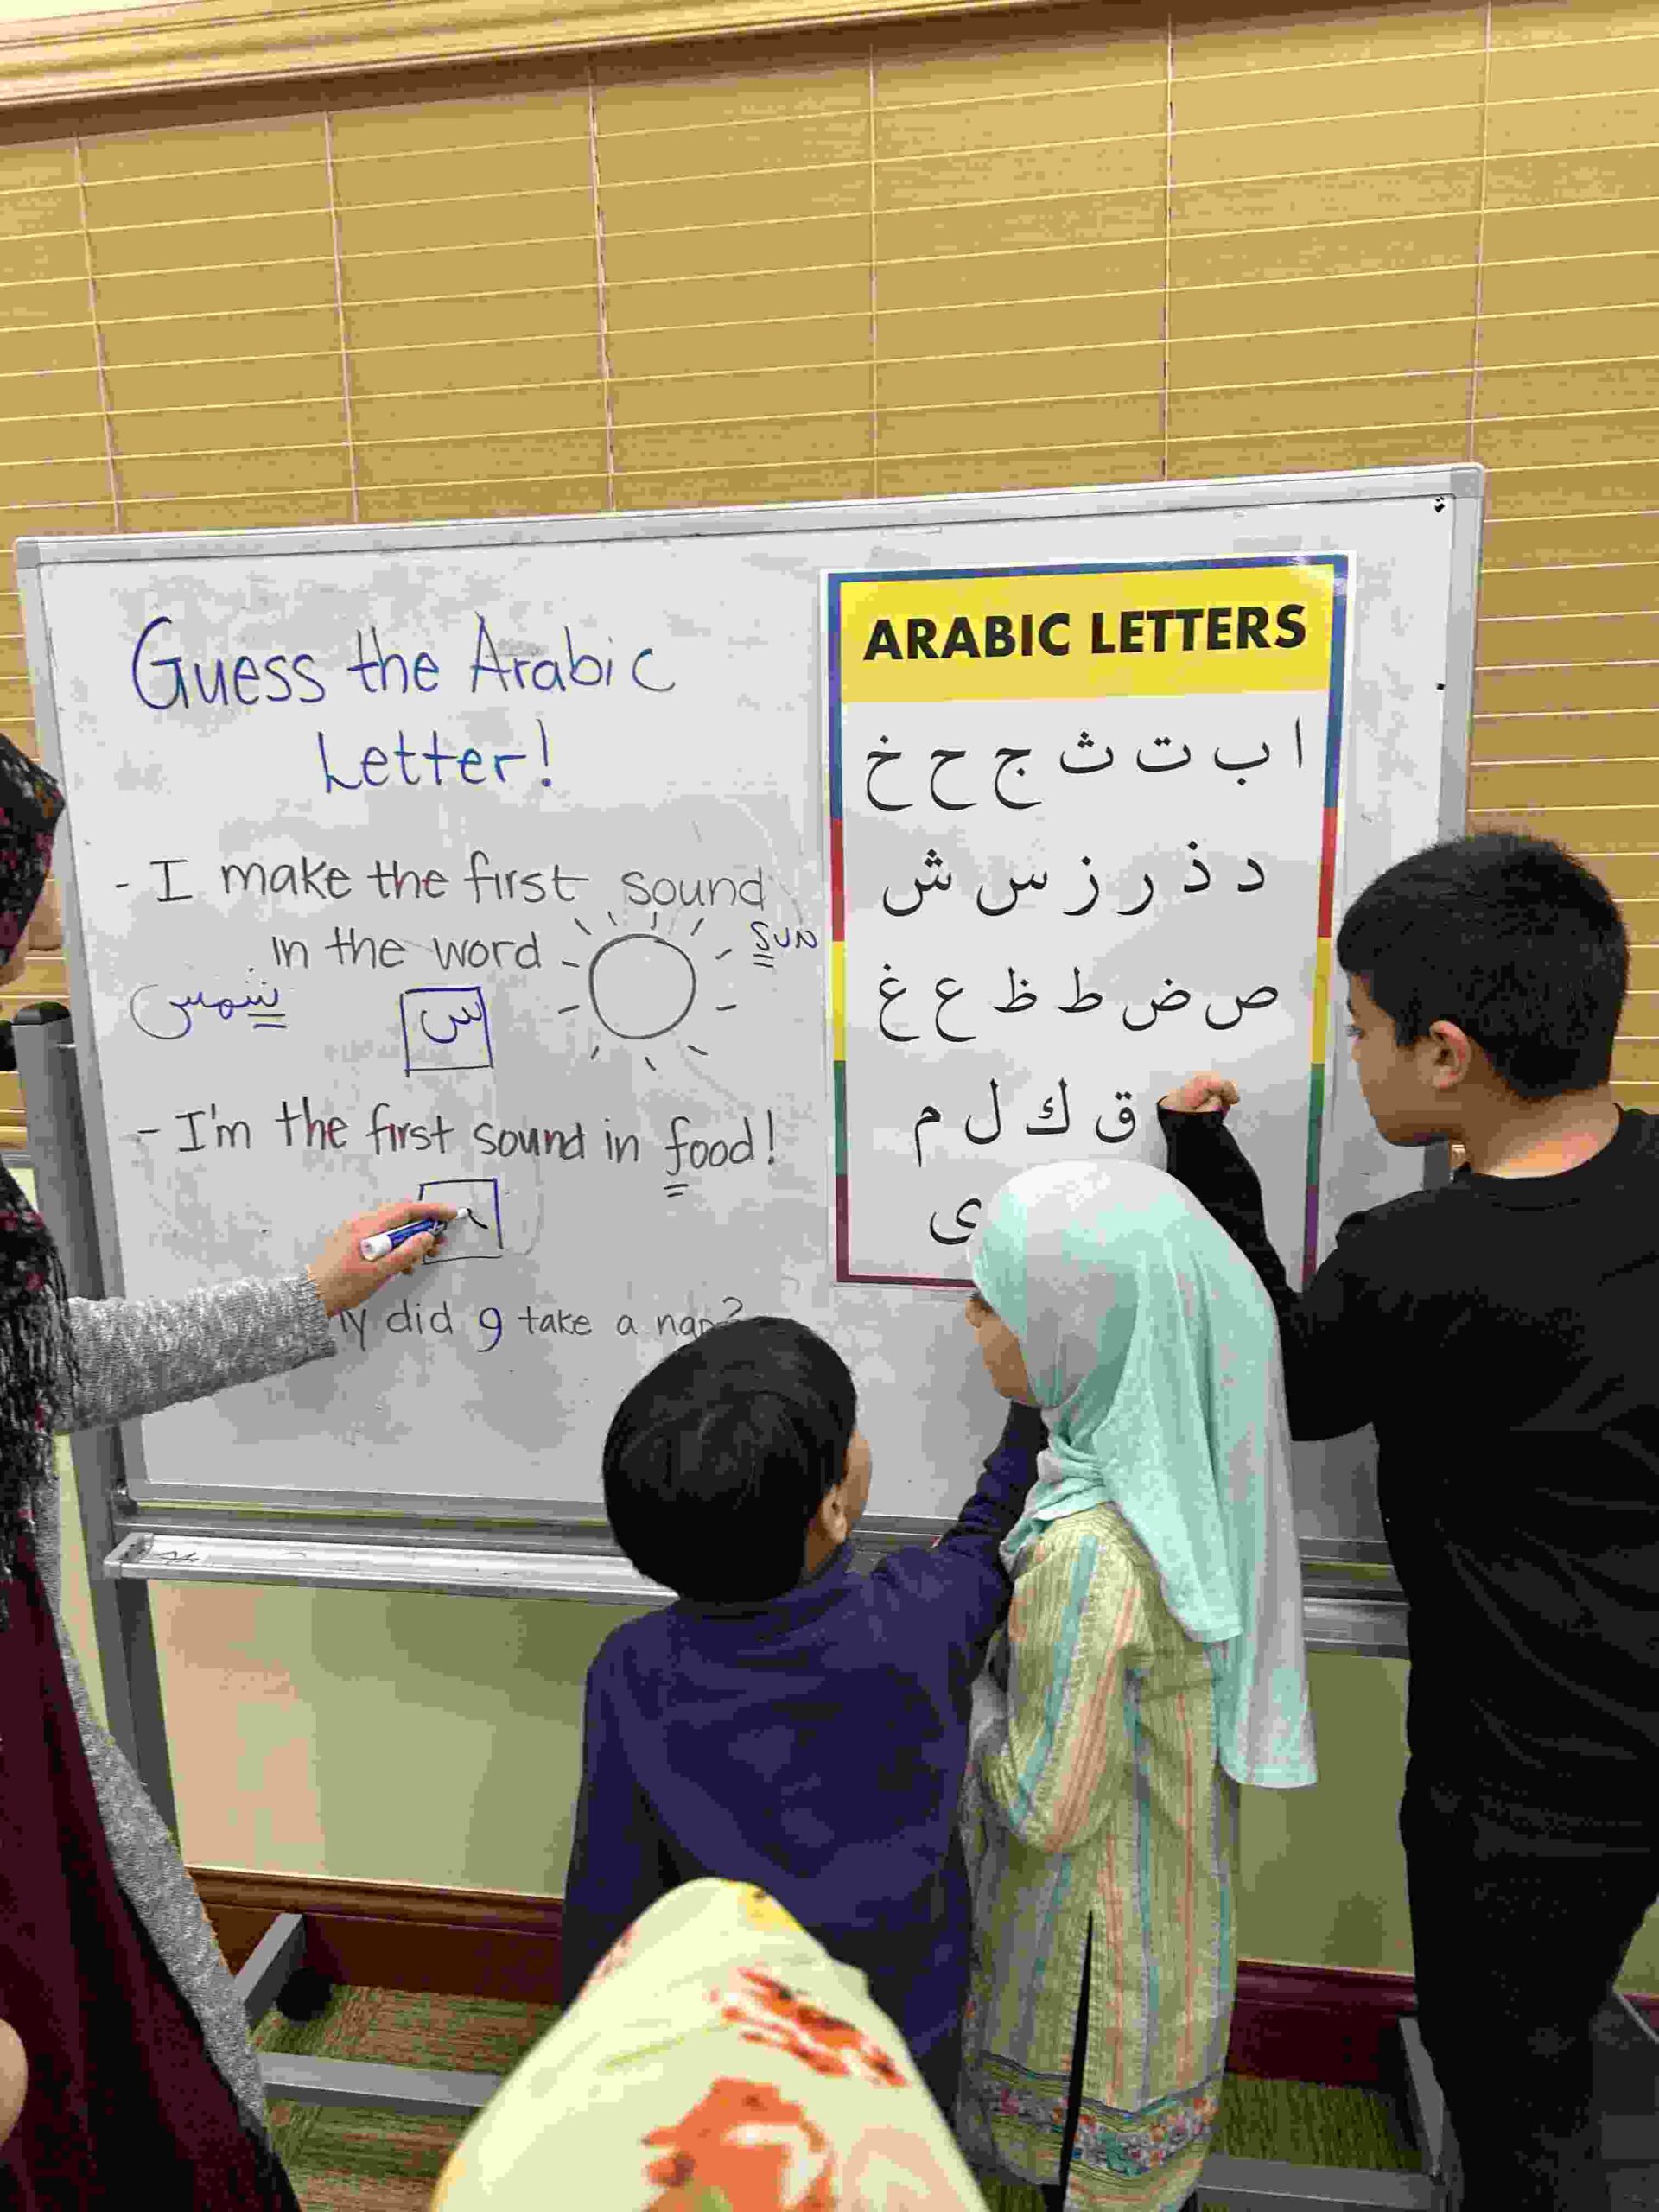 Guess the Arabic
Letter!
- I make the first sound
in the word -
SUN
شمس
س
- I'm the first sound in food!
did 9 take a nap?
ARABIC LETTERS
ا ب ت ث ج ح خ
د ذ ر ز س ش
ص ض ط ظ ع غ
ق ك ل م
ى